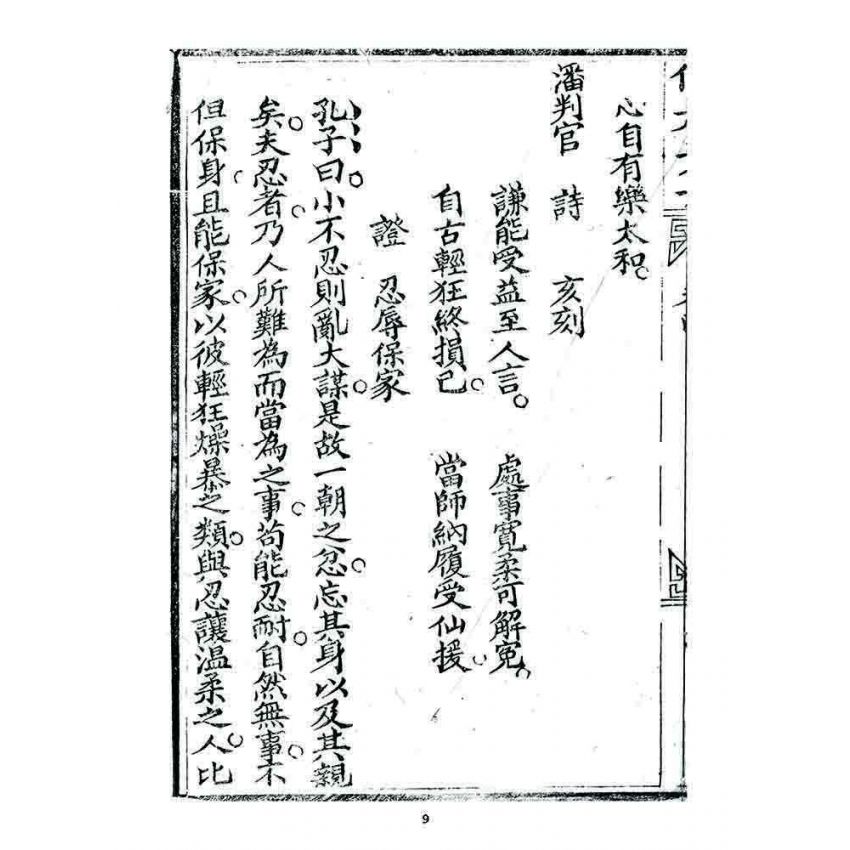 心自有樂太和。
潘判官　詩　亥刻
謙能受益至人言。　處事寬柔可解冤。
自古輕狂終損己。　當師納履受仙援。
證　忍辱保家
孔子曰。小不忍則亂大謀。是故一朝之忿。忘其身以及其親
矣。夫忍者。乃人所難為而當為之事。苟能忍耐。自然無事。不
但保身。且能保家。以彼輕狂燥暴之類。與忍讓温柔之人。比
9